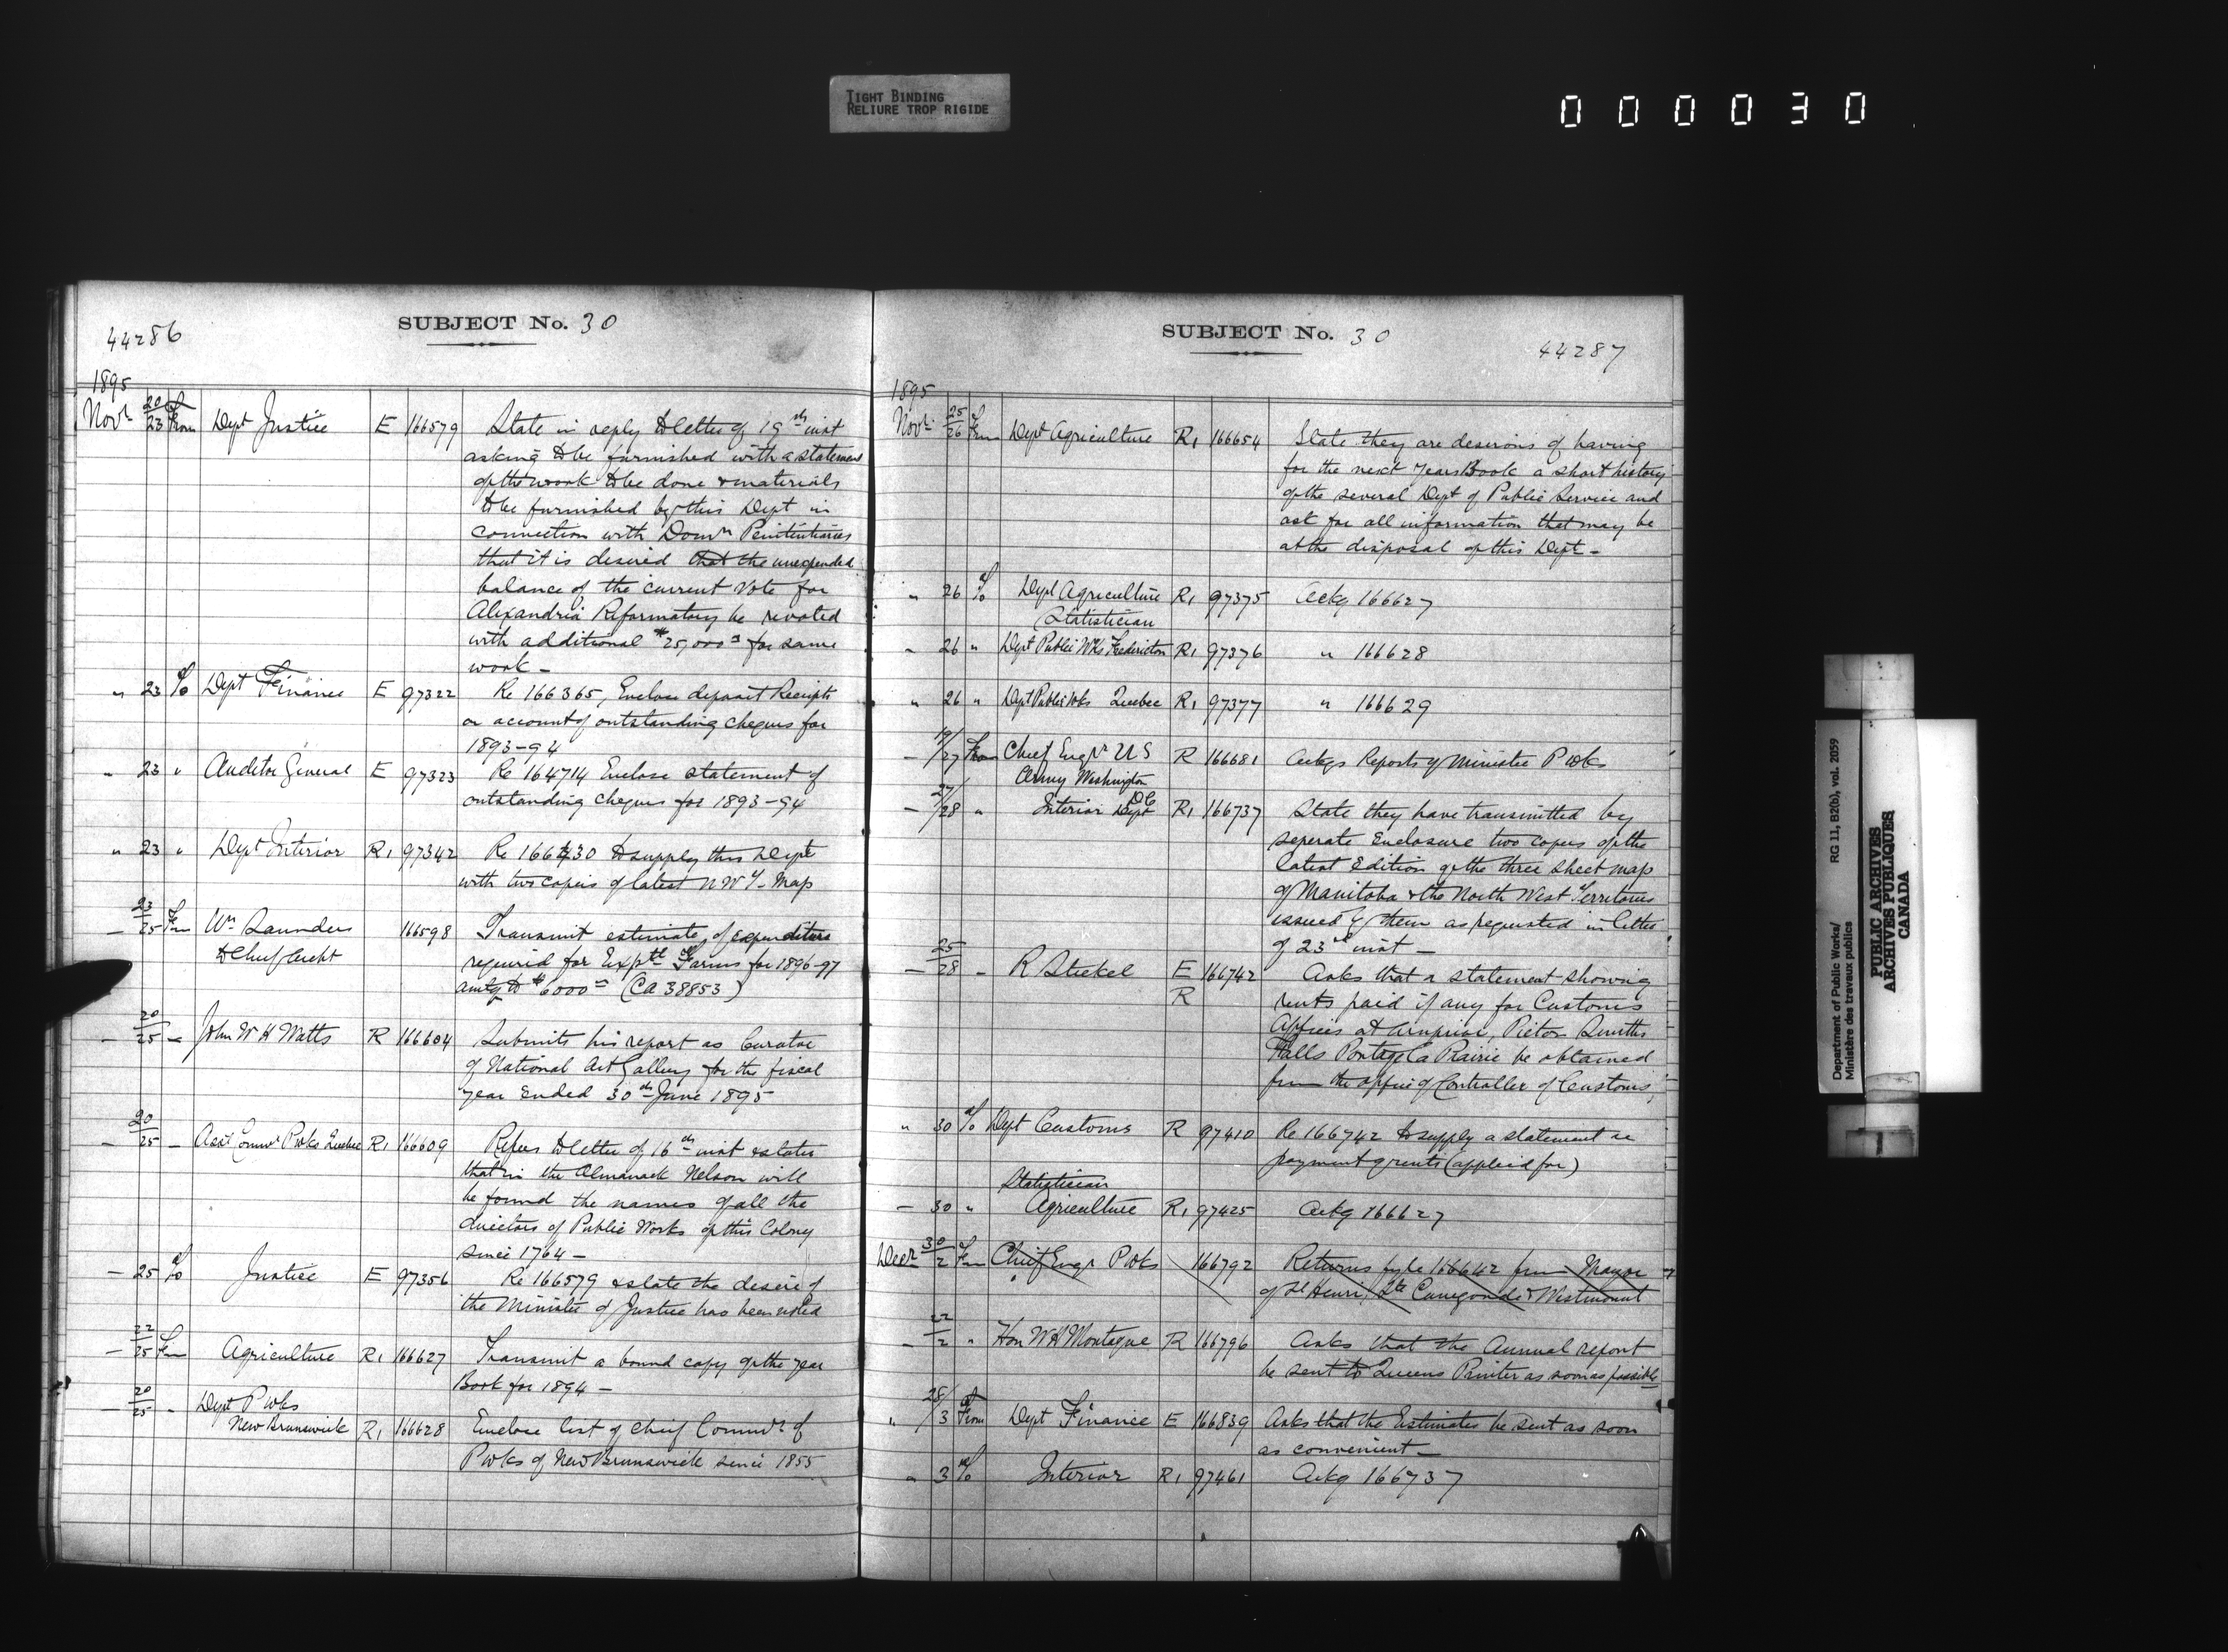 TIGHT BINDING
RELIURE TROP RIGIDE
0 0 0 0 3 0
44286
SUBJECT No. 30
1895
Novr 20/23 From Dept Justice E 166579 State in reply to letter of 19th inst
asking to be furnished with a statement
of the work to be done & materials
to be furnished by this Dept in
connection with Domn Penitentiaries
that it is desired that the unexpended
balance of the current vote for
Alexandria Reformatory be revoted
with additional $25,000 for same
work -
" 23 To Dept Finance E 97322 Re 166365, Enclose deposit Receipts
on account of outstanding cheques for
1893-94
" 23 " Auditor General E 97323 Re 164714 Enclose statement of
outstanding cheques for 1893-94
" 23 " Dept Interior R1 97342 Re 166430 to supply this Dept
with two copies of latest N W T Map
23/25 From Wm Saunders 166598 Transmit estimate of expenditure
to Chief Archt required for Exptl Farms for 1896-97
amtg to $6000 (CA 38853)
- 20/25 - John W H Watts R 166604 Submits his report as Curator
of National Art Gallery for the fiscal
year ended 30th June 1895
- 20/25 - Asst Commr P Wks Quebec R1 166609 Refers to letter of 16th inst & states
that in the Almanack Nelson will
be found the names of all the
directors of Public Works of this Colony
since 1764 -
- 25 To Justice E 97356 Re 166579 & state the desire of
the Minister of Justice has been noted
- 22/25 From Agriculture R1 166627 Transmit a bound copy of the year
Book for 1894 -
- 20/25 " Dept P Wks
New Brunswick R1 166628 Enclose list of Chief Commrs of
P Wks of New Brunswick since 1855
SUBJECT No. 30
44287
1895
Novr 25/26 From Dept Agriculture R1 166654 State they are desirous of having
for the next Years Book a short history
of the several Dept of Public Service and
ask for all information that may be
at the disposal of this Dept -
" 26 To Dept Agriculture R1 97375 Ackg 166627
(Statistician
" 26 " Dept Public Wks Fredericton R1 97376 " 166628
" 26 " Dept Public Wks Quebec R1 97377 " 166629
- 19/27 From Chief Engr U S R 166681 Ackgs Reports of Minister P Wks
Army Washington
DC
- 27/28 " Interior Dept R1 166737 State they have transmitted by
seperate Enclosure two copies of the
latest Edition of the three sheet map
of Manitoba & the North West Territories
issued by them as requested in letter
of 23rd inst -
- 25/28 - R Steckel E 166742 Asks that a statement showing
R rents paid if any for Customs
Offices at Arnprior, Picton Smiths
Falls Portage La Prairie be obtained
from the office of Controller of Customs,
" 30 To Dept Customs R 97410 Re 166742 to supply a statement re
payment of rents (applied for)
Statistician
- 30 " Agriculture R1 97425 Ackg 166627
Decr 30/2 From Chief Engr P Wks 166792 Returns fyle 166642 from Mayor
of St Henri, Ste Cunegonde & Westmount
- 22/2 " Hon W H Montague R 166796 Asks that the Annual report
be sent to Queens Printer as soon as possible
" 28/3 From Dept Finance E 166839 Asks that the Estimates be sent as soon
as convenient -
" 3 To Interior R1 97461 Ackg 166737
Department of Public Works/ RG 11, B2(b), vol. 2059
Ministère des travaux publics
PUBLIC ARCHIVES
ARCHIVES PUBLIQUES
CANADA